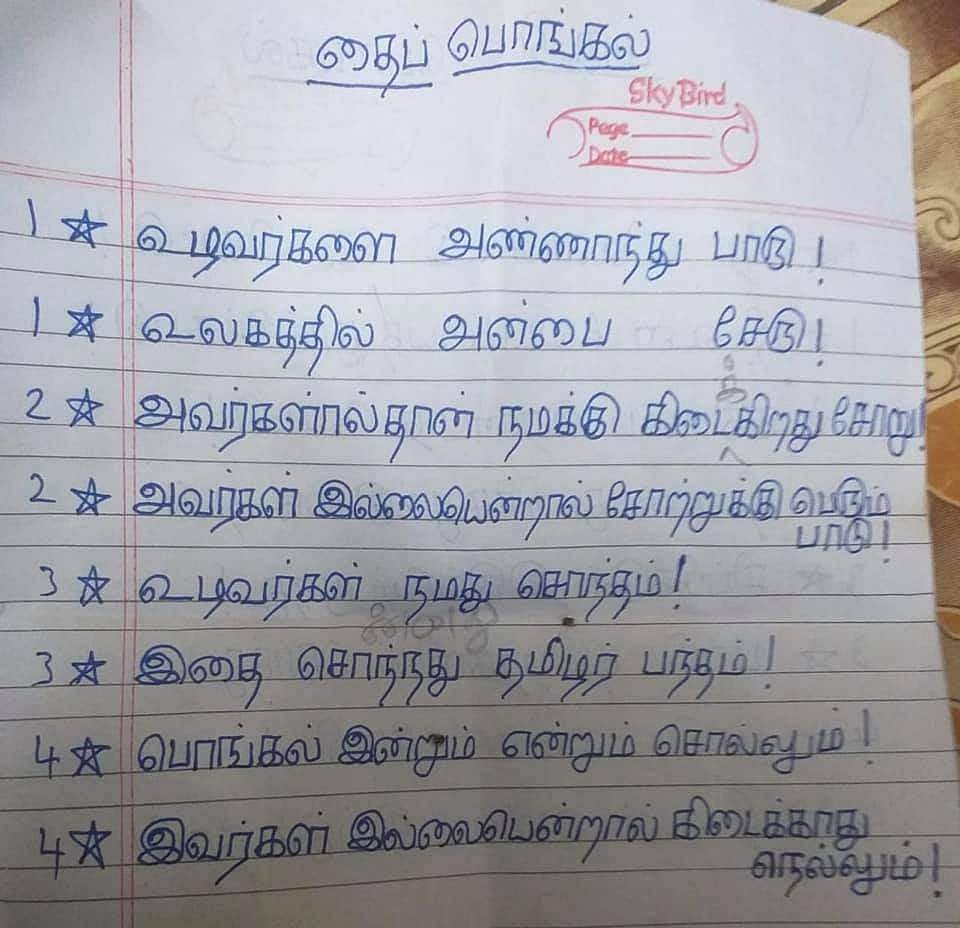 தைப் பொங்கல்
Sky Bird
Page
Date
1 ☆ உழவர்களை அண்ணாந்து பாடு!
1 ☆ உலகத்தில் அன்பை சேடு!
2 ☆ அவர்களால்தான் நமக்கு கிடைக்கிறது சோறு!
2 ☆ அவர்கள் இல்லையென்றால் சோற்றுக்கு பெரும்
பாடு!
3 ☆ உழவர்கள் நமது சொந்தம்!
3 ☆ இதை சொந்நது தமிழர் பந்தம்!
4 ☆ பொங்கல் இன்றும் என்றும் சொல்லும்!
4 ☆ இவர்கள் இல்லையென்றால் கிடைக்காது
நெல்லும்!